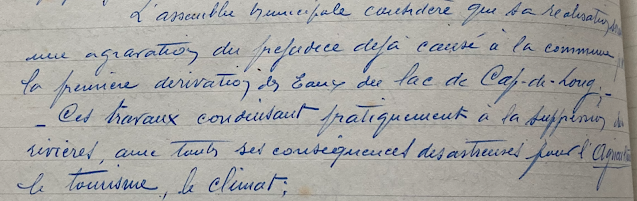 L'assemblée municipale considère que sa réalisation
une agravation du préjudice déjà causé à la commune
la première dérivation des Eaux du lac de Cap-de-Long;
- Ces travaux conduisant pratiquement à la suppression
rivières, avec toutes ses conséquences desastreuses pour l'
le tourisme, le climat;